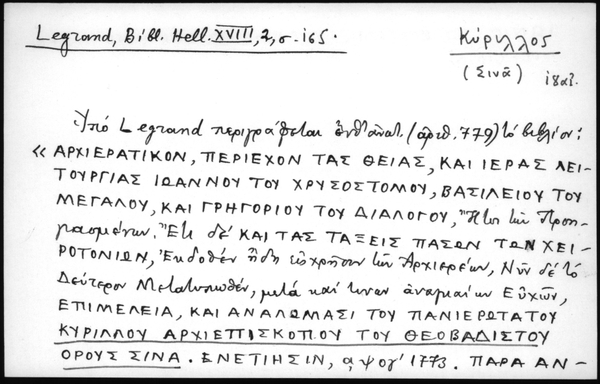 Legrand, Bibl. Hell. XVIII, 2, σ. 165.
Κύριλλος
(Σινᾶ)
Ὑπό Legrand περιγράφεται ἐνθ' ἀνωτ. (ἀριθ. 779) τό βιβλίον:
« ΑΡΧΙΕΡΑΤΙΚΟΝ, ΠΕΡΙΕΧΟΝ ΤΑΣ ΘΕΙΑΣ, ΚΑΙ ΙΕΡΑΣ ΛΕΙ-
ΤΟΥΡΓΙΑΣ ΙΩΑΝΝΟΥ ΤΟΥ ΧΡΥΣΟΣΤΟΜΟΥ, ΒΑΣΙΛΕΙΟΥ ΤΟΥ
ΜΕΓΑΛΟΥ, ΚΑΙ ΓΡΗΓΟΡΙΟΥ ΤΟΥ ΔΙΑΛΟΓΟΥ, Ἤτοι τῶν Προη-
γιασμένων. Ἔτι δέ ΚΑΙ ΤΑΣ ΤΑΞΕΙΣ ΠΑΣΩΝ ΤΩΝ ΧΕΙ-
ΡΟΤΟΝΙΩΝ, Ἐκδοθέν ἤδη εἰς χρῆσιν τῶν Ἀρχιερέων, Νῦν δέ τό
Δεύτερον Μετατυπωθέν, μετά καί τινων ἀναγκαίων Εὐχῶν,
ΕΠΙΜΕΛΕΙΑ, ΚΑΙ ΑΝΑΛΩΜΑΣΙ ΤΟΥ ΠΑΝΙΕΡΩΤΑΤΟΥ
ΚΥΡΙΛΛΟΥ ΑΡΧΙΕΠΙΣΚΟΠΟΥ ΤΟΥ ΘΕΟΒΑΔΙΣΤΟΥ
ΟΡΟΥΣ ΣΙΝΑ. ΕΝΕΤΙΗΣΙΝ, αψογ' 1773. ΠΑΡΑ ΑΝ-